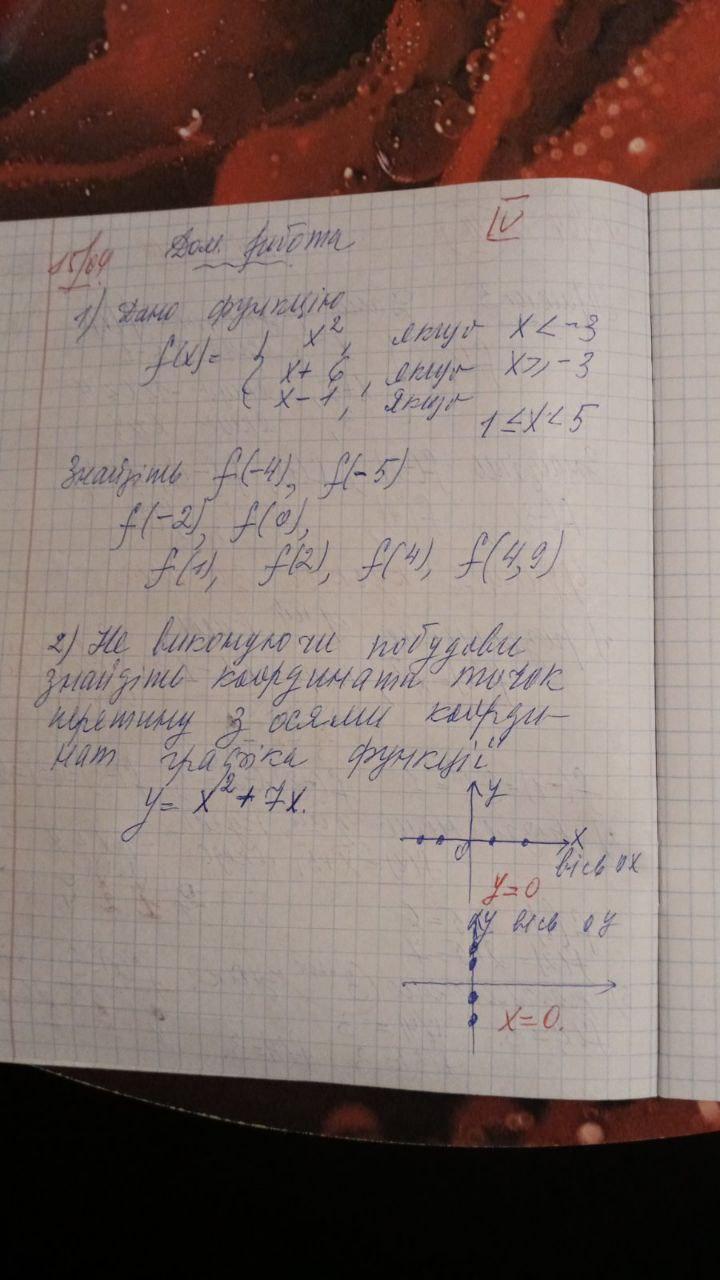 IV
15/09
Дом. робота
1) Дано функцію
f(x) = { x², якщо x < -3
x + 6, якщо x ≥ -3
x - 1, якщо
1 ≤ x < 5
Знайдіть f(-4), f(-5)
f(-2), f(0),
f(1), f(2), f(4), f(4,9)
2) Не виконуючи побудови
знайдіть координати точок
перетину з осями коорди-
нат графіка функції
y = x² + 7x.
y
x
0
вісь ox
y=0
y вісь oy
x=0.